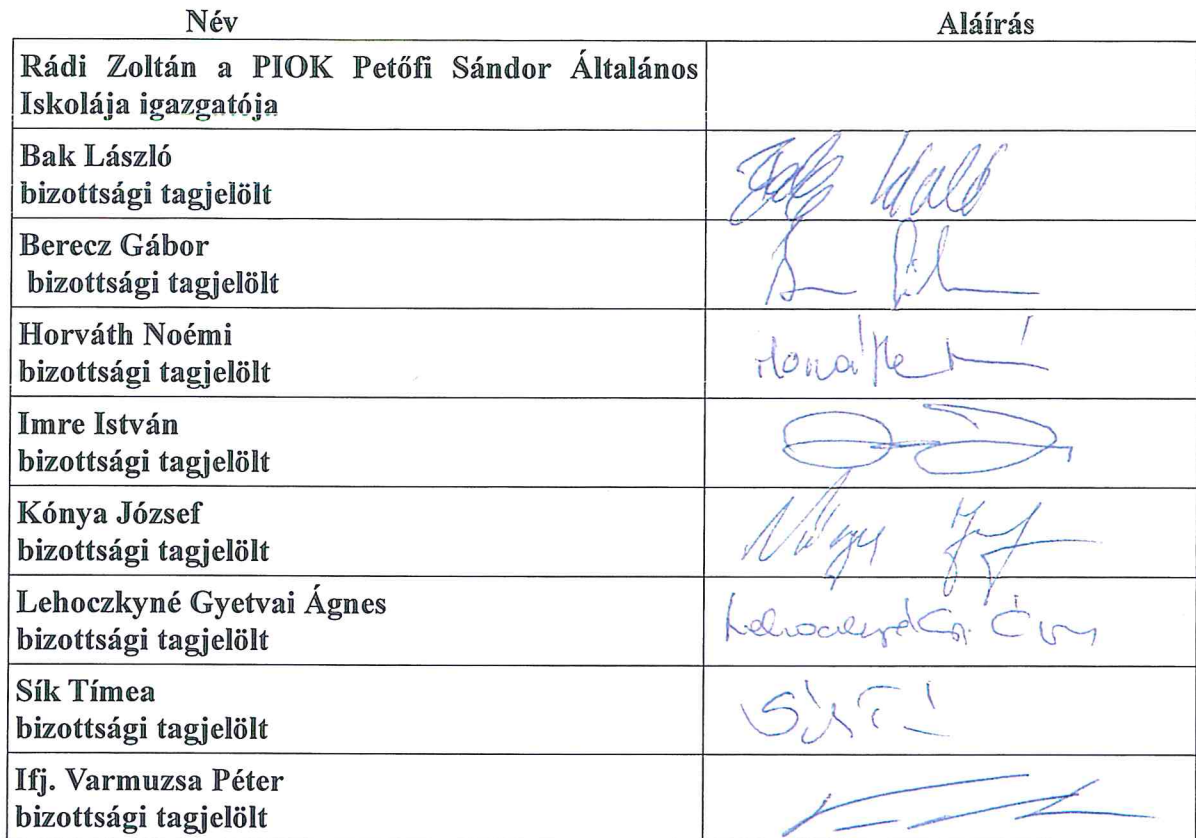 Név Aláírás
Rádi Zoltán a PIOK Petőfi Sándor Általános
Iskolája igazgatója
Bak László
bizottsági tagjelölt
Berecz Gábor
bizottsági tagjelölt
Horváth Noémi
bizottsági tagjelölt
Imre István
bizottsági tagjelölt
Kónya József
bizottsági tagjelölt
Lehoczkyné Gyetvai Ágnes
bizottsági tagjelölt
Sík Tímea
bizottsági tagjelölt
Ifj. Varmuzsa Péter
bizottsági tagjelölt